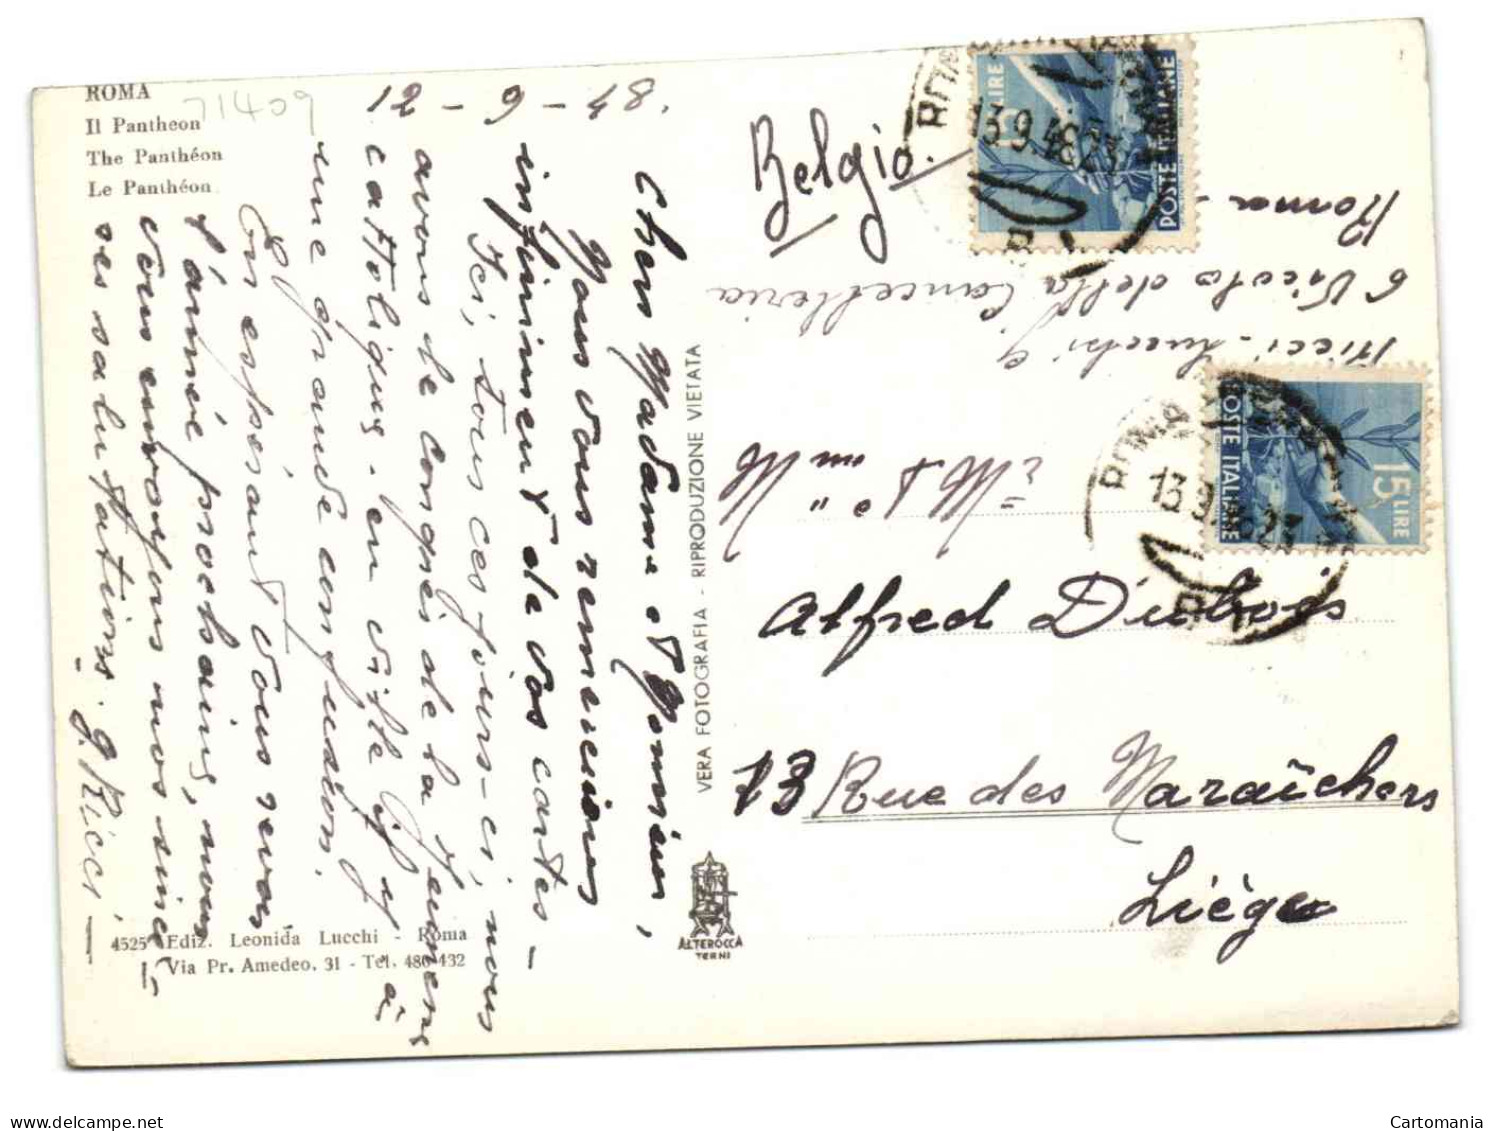 ROMA
Il Pantheon
The Panthéon
Le Panthéon
71409
12 - 9 - 48.
Chers Madame et Monsieur,
Nous vous remercions
infiniment de vos cartes -
Ici, tous ces jours-ci, nous
avons le Congrès de la Jeunesse
cattolique. en ville il y a
une grande confusion.
En espérant vous revoir
l'année prochaine, nous
vous envoyons nos sincè-
res salutations.
g. Ricci -
4525 Ediz. Leonida Lucchi - Roma
Via Pr. Amedeo, 31 - Tel. 480-432
VERA FOTOGRAFIA - RIPRODUZIONE VIETATA
ALTEROCCA
TERNI
Belgio.
Ricci - Lucchi G
6 Vicolo della Cancelleria
Roma
M. et
Alfred Dubois
13 Rue des Maraîchers
Liège
15 LIRE
POSTE ITALIANE
ROMA
13.9.48.23
15 LIRE
POSTE ITALIANE
ROMA
13.9.48.23
Cartomania